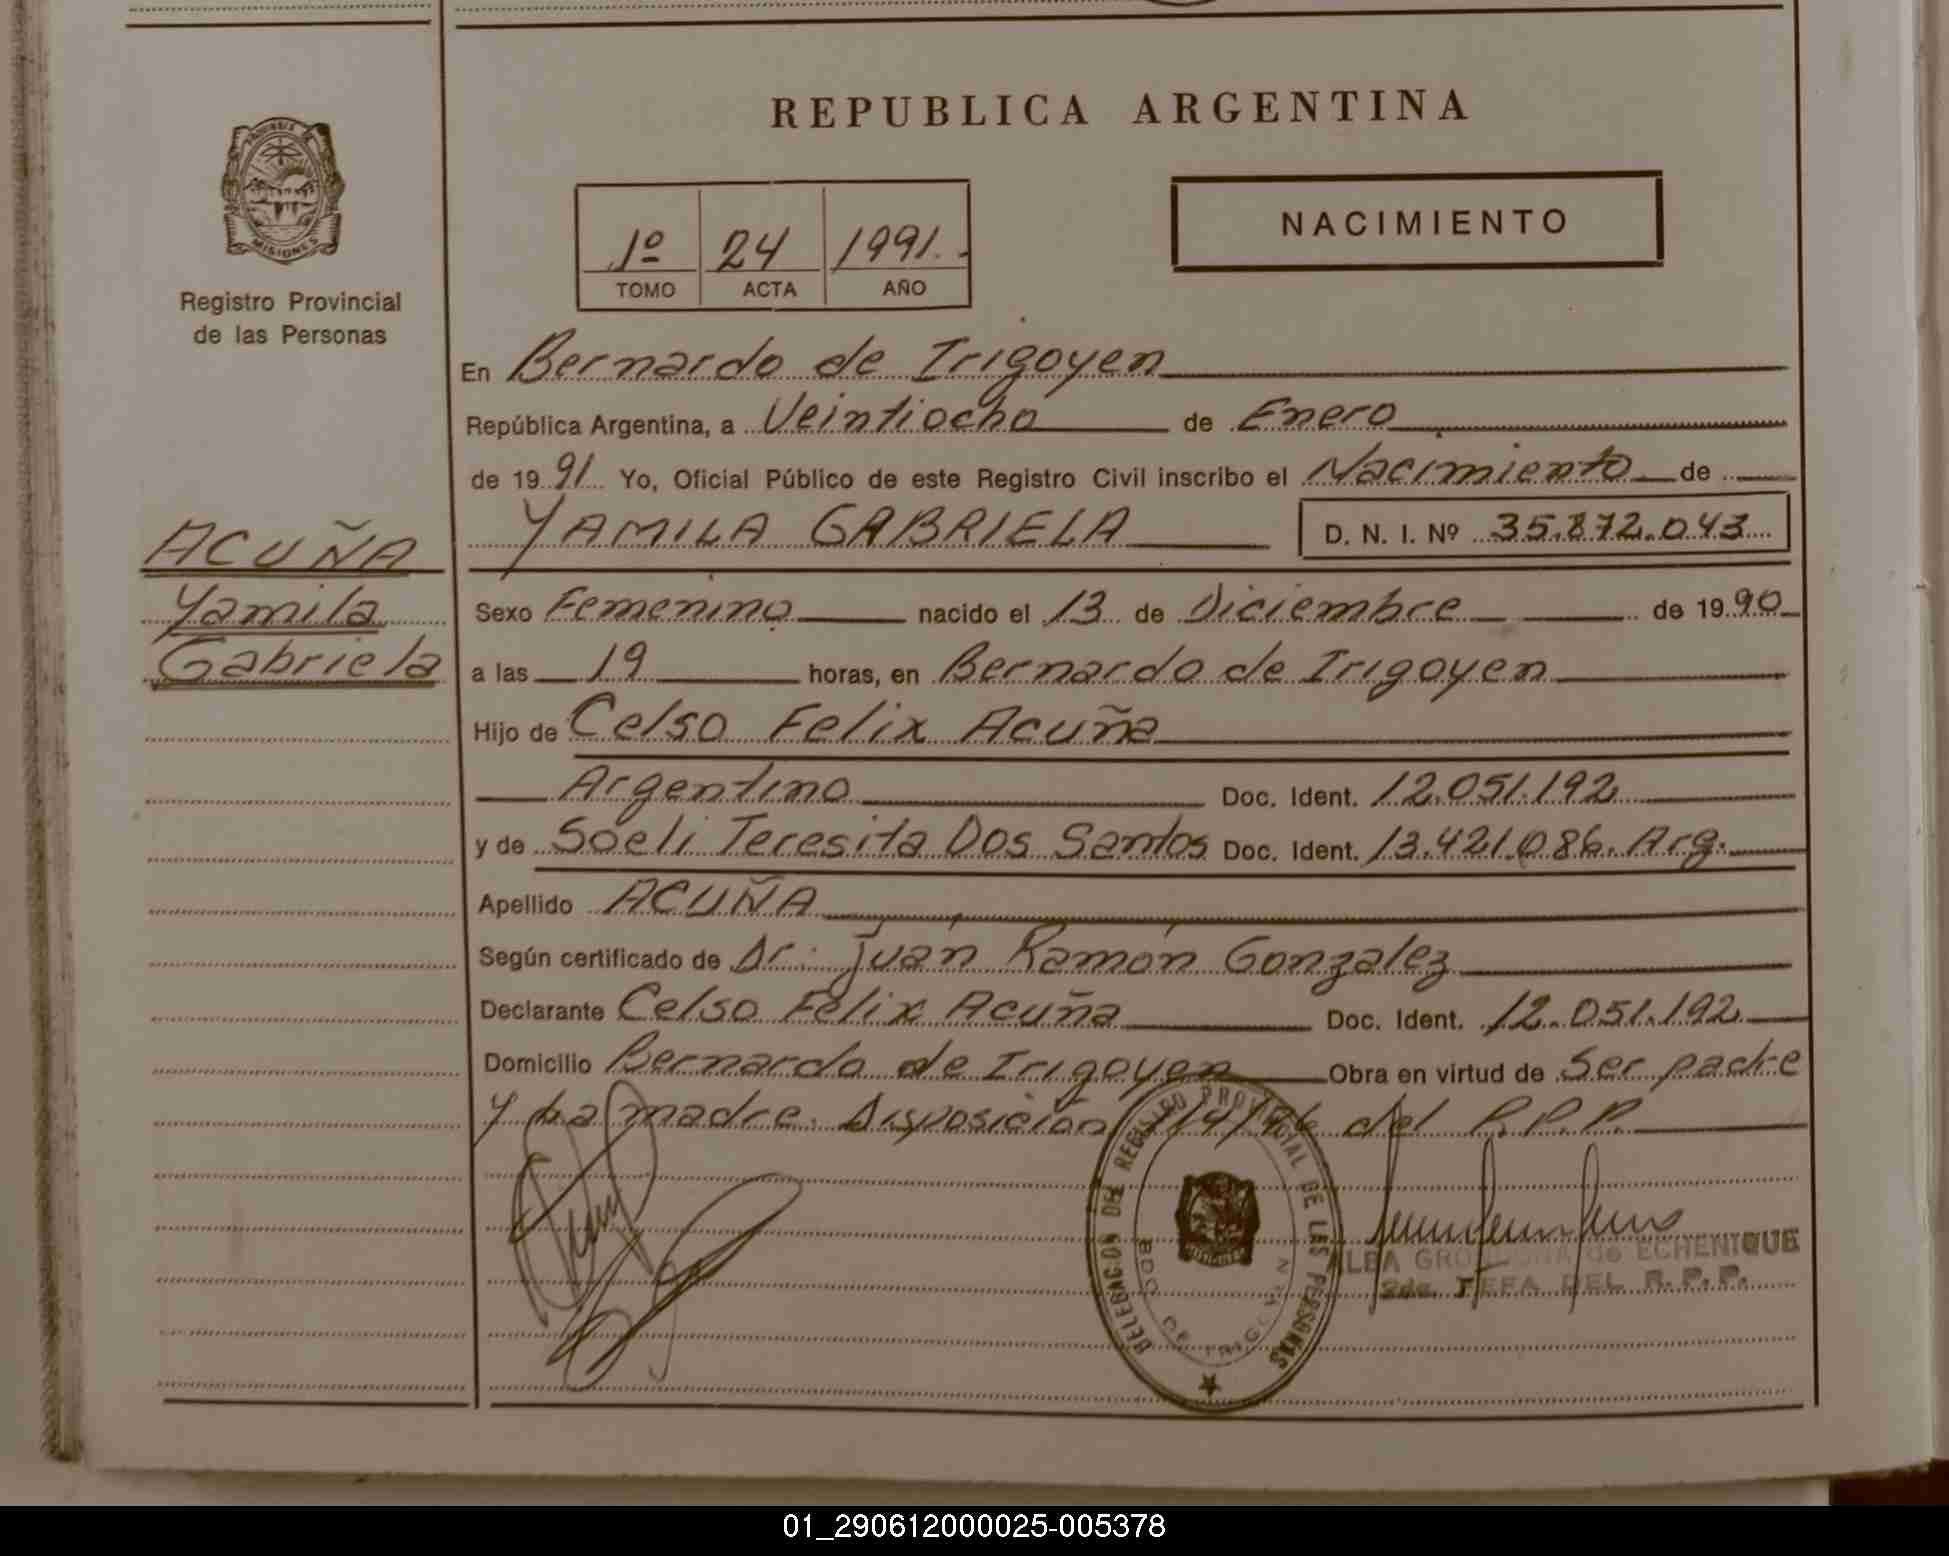 REPUBLICA ARGENTINA
PROVINCIA DE
MISIONES
Registro Provincial
de las Personas
1º 24 1991.-
TOMO ACTA AÑO
NACIMIENTO
En Bernardo de Irigoyen
República Argentina, a Veintiocho de Enero
de 1991 Yo, Oficial Público de este Registro Civil inscribo el Nacimiento de
YAMILA GABRIELA D. N. I. Nº 35.872.043
ACUÑA
Yamila
Gabriela
Sexo Femenino nacido el 13 de Diciembre de 1990
a las 19 horas, en Bernardo de Irigoyen
Hijo de Celso Felix Acuña
Argentino Doc. Ident. 12.051.192
y de Soeli Teresita Dos Santos Doc. Ident. 13.421.086. Arg.
Apellido ACUÑA
Según certificado de Dr. Juan Ramón Gonzalez
Declarante Celso Felix Acuña Doc. Ident. 12.051.192
Domicilio Bernardo de Irigoyen Obra en virtud de Ser padre
y La madre. Disposición del R.P.P.
DELEGACION DEL REGISTRO PROVINCIAL DE LAS PERSONAS
BDO. DE IRIGOYEN
ALBA de ECHENIQUE
2da. JEFA DEL R. P. P.
01_290612000025-005378